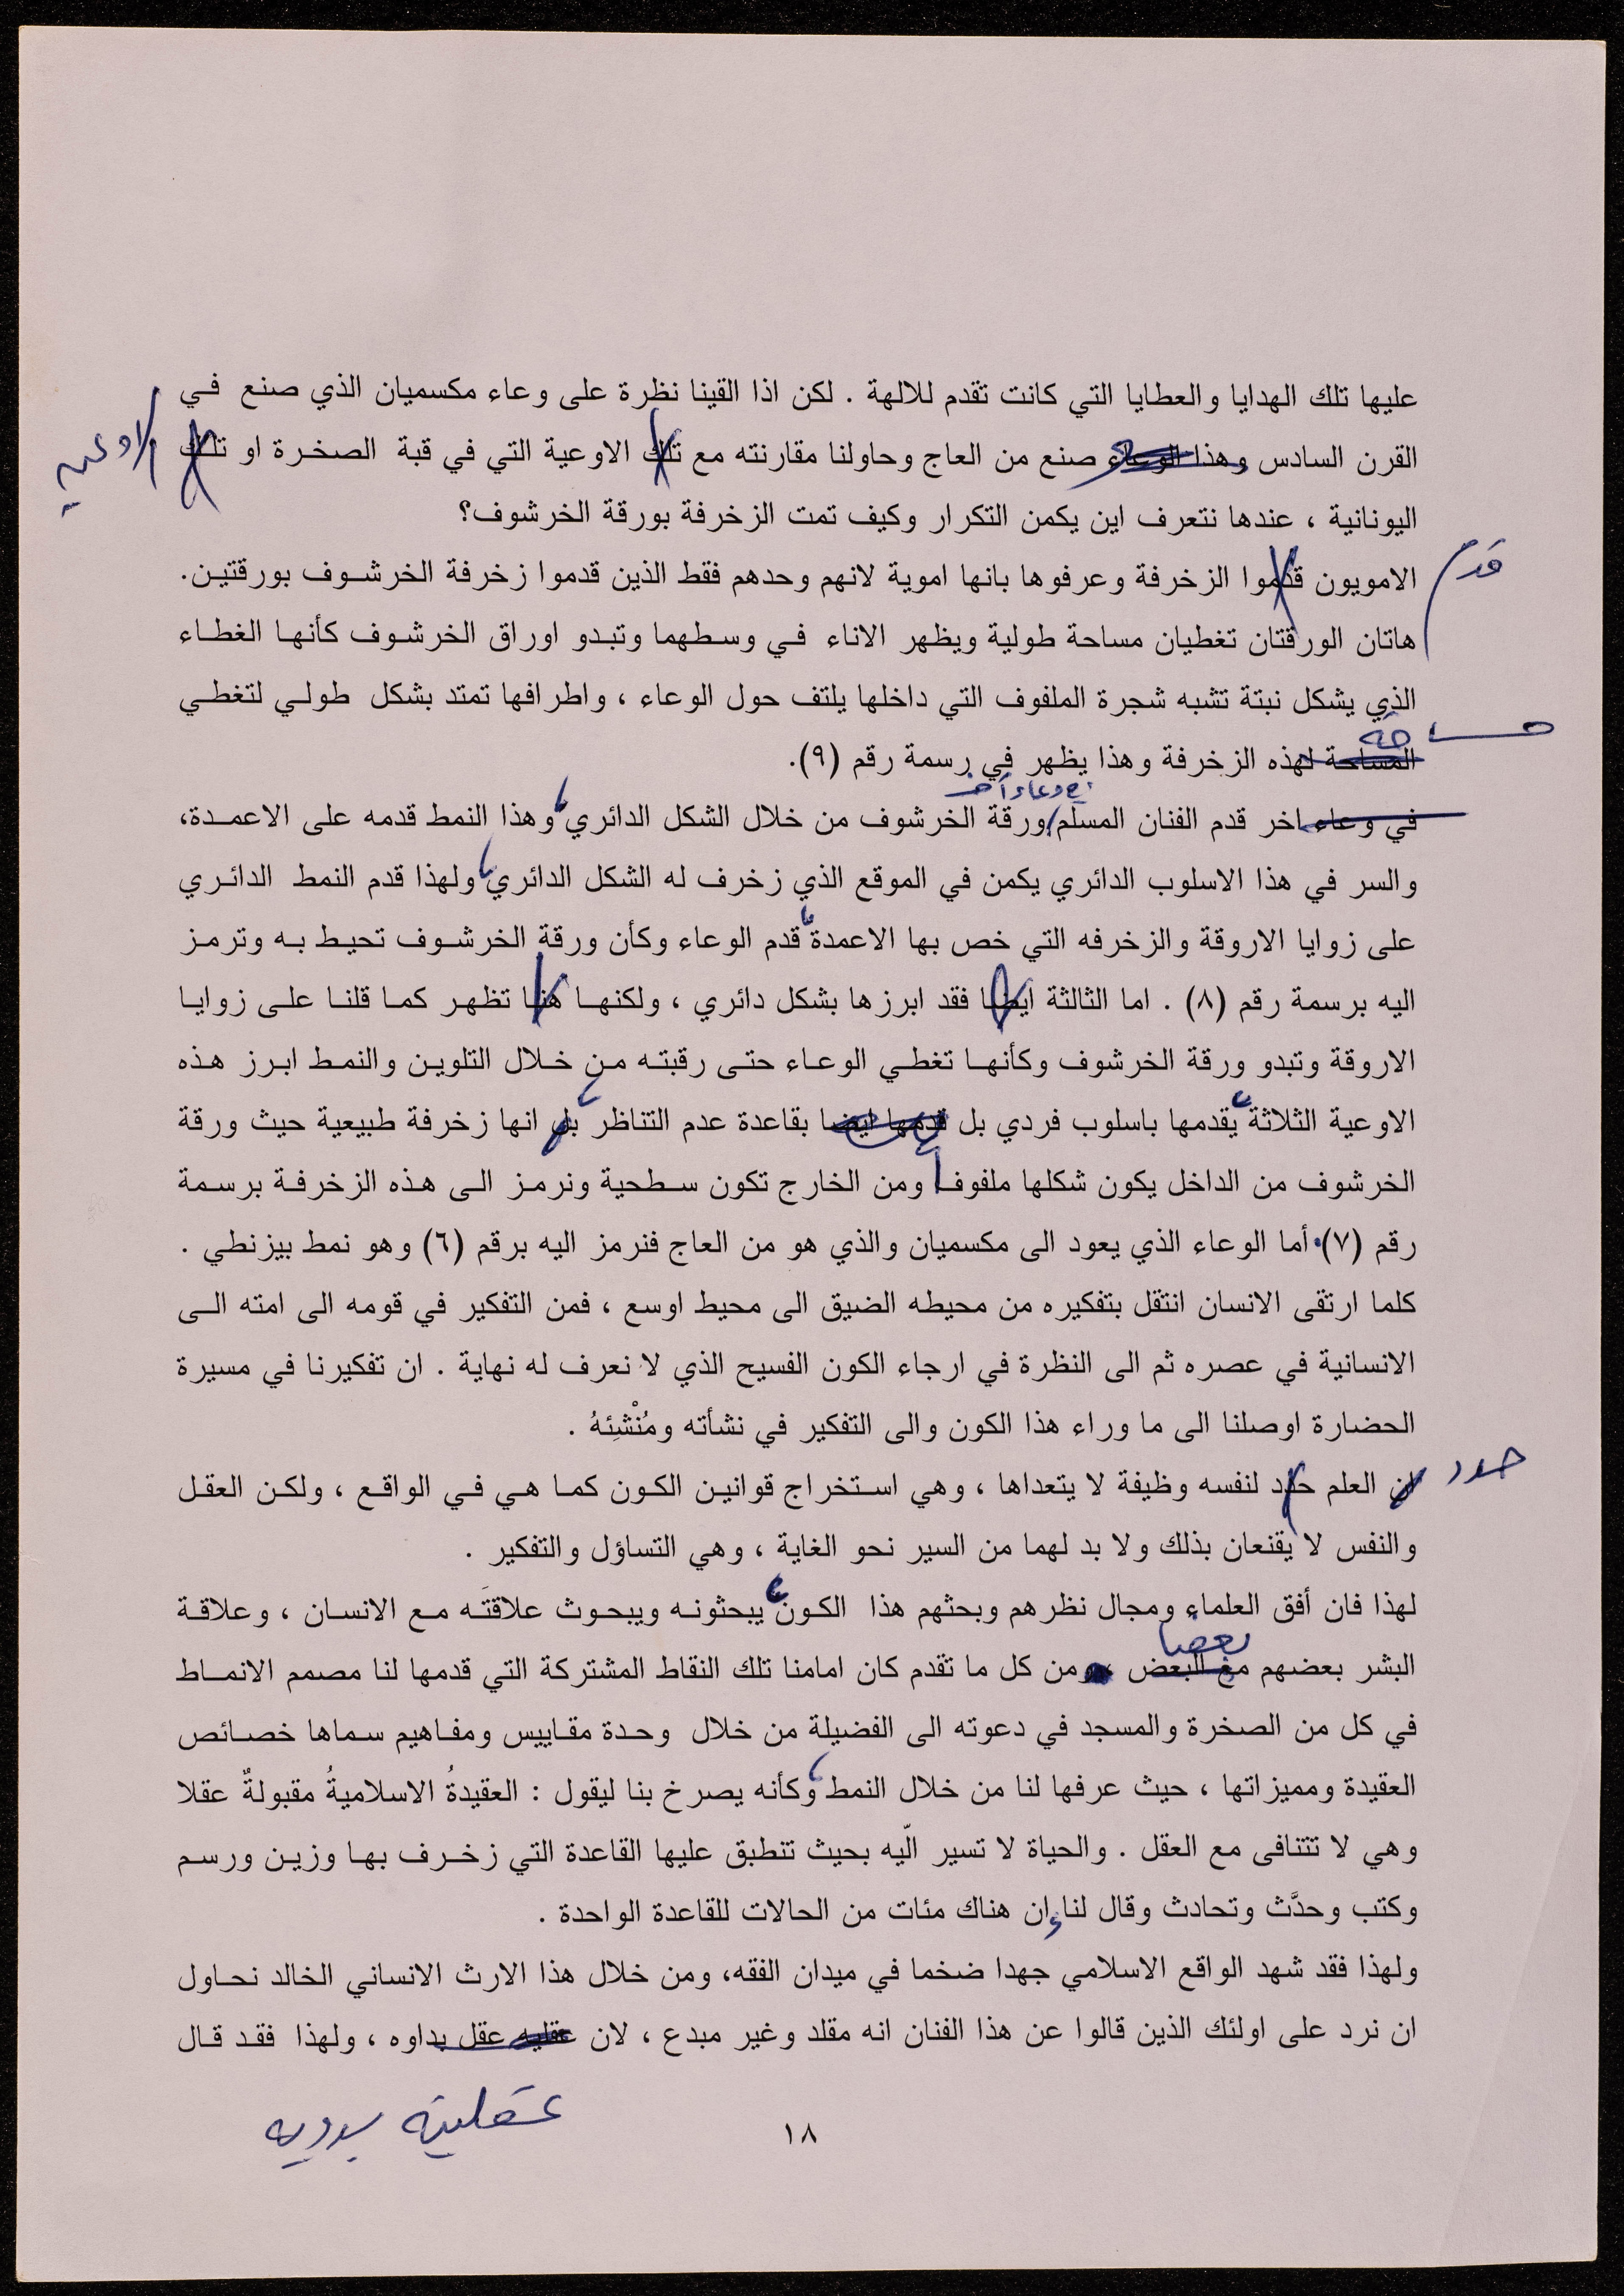 عليها تلك الهدايا والعطايا التي كانت تقدم للالهة . لكن اذا القينا نظرة على وعاء مكسميان الذي صنع في
القرن السادس وهذا الوعاء صنع من العاج وحاولنا مقارنته مع تلك الاوعية التي في قبة الصخرة او تلك
الاوعية
اليونانية ، عندها نتعرف اين يكمن التكرار وكيف تمت الزخرفة بورقة الخرشوف؟
قدم
الامويون قدموا الزخرفة وعرفوها بانها اموية لانهم وحدهم فقط الذين قدموا زخرفة الخرشوف بورقتين.
هاتان الورقتان تغطيان مساحة طولية ويظهر الاناء في وسطهما وتبدو اوراق الخرشوف كأنها الغطاء
الذي يشكل نبتة تشبه شجرة الملفوف التي داخلها يلتف حول الوعاء ، واطرافها تمتد بشكل طولي لتغطي
مساحة
المساحة لهذه الزخرفة وهذا يظهر في رسمة رقم (٩).
في وعاء آخر
في وعاء اخر قدم الفنان المسلم ورقة الخرشوف من خلال الشكل الدائري، وهذا النمط قدمه على الاعمدة،
والسر في هذا الاسلوب الدائري يكمن في الموقع الذي زخرف له الشكل الدائري، ولهذا قدم النمط الدائري
على زوايا الاروقة والزخرفه التي خص بها الاعمدة، قدم الوعاء وكأن ورقة الخرشوف تحيط به وترمز
اليه برسمة رقم (٨) . اما الثالثة ايضا فقد ابرزها بشكل دائري ، ولكنها هنا تظهر كما قلنا على زوايا
الاروقة وتبدو ورقة الخرشوف وكأنها تغطي الوعاء حتى رقبته من خلال التلوين والنمط ابرز هذه
الاوعية الثلاثة، يقدمها باسلوب فردي بل قدمها ايضا بقاعدة عدم التناظر، بل انها زخرفة طبيعية حيث ورقة
الخرشوف من الداخل يكون شكلها ملفوفاً ومن الخارج تكون سطحية ونرمز الى هذه الزخرفة برسمة
رقم (٧). أما الوعاء الذي يعود الى مكسميان والذي هو من العاج فنرمز اليه برقم (٦) وهو نمط بيزنطي .
كلما ارتقى الانسان انتقل بتفكيره من محيطه الضيق الى محيط اوسع ، فمن التفكير في قومه الى امته الى
الانسانية في عصره ثم الى النظرة في ارجاء الكون الفسيح الذي لا نعرف له نهاية . ان تفكيرنا في مسيرة
الحضارة اوصلنا الى ما وراء هذا الكون والى التفكير في نشأته ومُنْشِئهُ .
حدد
ان العلم حدد لنفسه وظيفة لا يتعداها ، وهي استخراج قوانين الكون كما هي في الواقع ، ولكن العقل
والنفس لا يقنعان بذلك ولا بد لهما من السير نحو الغاية ، وهي التساؤل والتفكير .
لهذا فان أفق العلماء ومجال نظرهم وبحثهم هذا الكون، يبحثونه ويبحوث علاقتَه مع الانسان ، وعلاقة
بعضا
البشر بعضهم مع البعض ومن كل ما تقدم كان امامنا تلك النقاط المشتركة التي قدمها لنا مصمم الانماط
في كل من الصخرة والمسجد في دعوته الى الفضيلة من خلال وحدة مقاييس ومفاهيم سماها خصائص
العقيدة ومميزاتها ، حيث عرفها لنا من خلال النمط، وكأنه يصرخ بنا ليقول : العقيدةُ الاسلاميةُ مقبولةٌ عقلا
وهي لا تتنافى مع العقل . والحياة لا تسير الّيه بحيث تنطبق عليها القاعدة التي زخرف بها وزين ورسم
وكتب وحدَّث وتحادث وقال لنا إن هناك مئات من الحالات للقاعدة الواحدة .
ولهذا فقد شهد الواقع الاسلامي جهدا ضخما في ميدان الفقه، ومن خلال هذا الارث الانساني الخالد نحاول
ان نرد على اولئك الذين قالوا عن هذا الفنان انه مقلد وغير مبدع ، لان عقليه عقل بداوه ، ولهذا فقد قال
عقلية بدويه
١٨